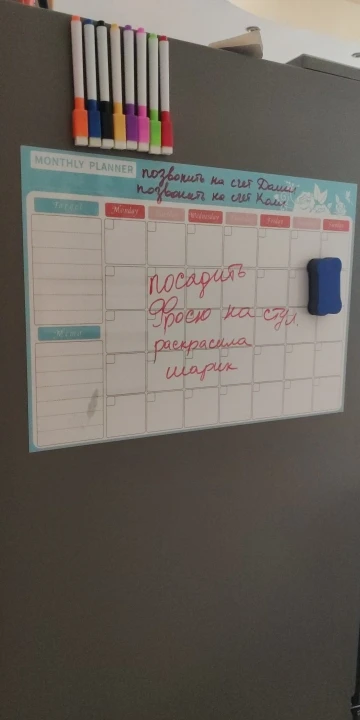 MONTHLY PLANNER
позвонить на счет Даши
позвонить на счет Коли
Target
Monday
Wednesday
Friday
посадить
Фросю на стул.
раскрасила
шарик
Memo